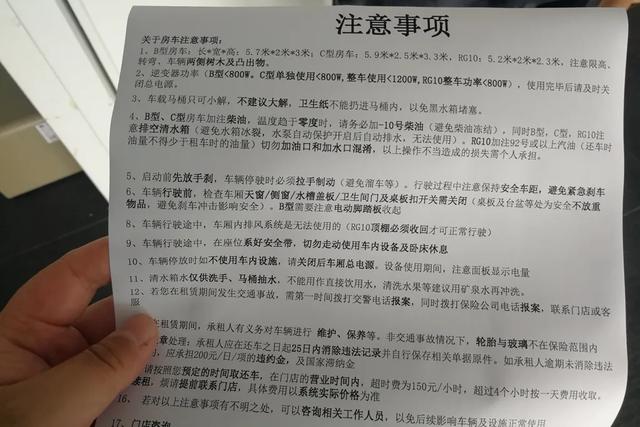 注意事项
关于房车注意事项：
1、B型房车：长*宽*高：5.7米*2米*3米；C型房车：5.9米*2.5米*3.3米，RG10：5.2米*2米*2.3米，注意限高、
转弯、车辆两侧树木及凸出物。
2、逆变器功率（B型<800W。C型单独使用<800W,整车使用<1200W,RG10整车功率<800W），使用完毕后请及时关
闭总电源。
3、车载马桶只可小解，不建议大解，卫生纸不能扔进马桶内，以免黑水箱堵塞。
4、B型、C型房车加注柴油，温度趋于零度时，请务必加-10号柴油（避免柴油冻结），同时B型，C型，RG10注
意排空清水箱（避免水箱冰裂，水泵自动保护开启后自动排水，无法使用）。RG10加注92号或以上汽油（还车时
油量不得少于租车时的油量）切勿加油口和加水口混淆，以上操作不当造成的损失需个人承担。
5、启动前先放手刹，车辆停驶时必须拉手制动（避免溜车等）。行驶过程中注意保持安全车距，避免紧急刹车
6、车辆行驶前，检查车厢天窗/侧窗/水槽盖板/卫生间门及桌板扣开关需关闭（桌板及台盆等处为安全不放重
物品，避免刹车冲击影响安全）。B型需要注意电动脚踏板收起
8、车辆行驶途中，车厢内排风系统是无法使用的（RG10顶棚必须收回才可正常行驶）
9、车辆行驶途中，在座位系好安全带，切勿走动使用车内设备及卧床休息
10、车辆停放时如不使用车内设施，请关闭后车厢总电源。设备使用期间，注意面板显示电量
11、清水箱水仅供洗手、马桶抽水，不能用作直接饮用水，清洗水果等建议用矿泉水再冲洗。
12、若您在租赁期间发生交通事故，需第一时间拨打交警电话报案，同时拨打保险公司电话报案，联系门店或客
服
在租赁期间，承租人有义务对车辆进行 维护、保养等。非交通事故情况下，轮胎与玻璃不在保险范围内
章处理：承租人应在还车之日起25日内消除违法记录并自行保存相关单据原件。如承租人逾期未消除违法
，应承担200元/日/项的违约金，及国家滞纳金
请按照您预定的时间取还车，在门店的营业时间内，超时费为150元/小时，超过4个小时按一天费用收取。
续租，烦请提前联系门店，具体费用以系统实际价格为准
16、 若对以上注意事项有不明之处，可以咨询相关工作人员，以免后续影响车辆及设施正常使用
17、门店咨询